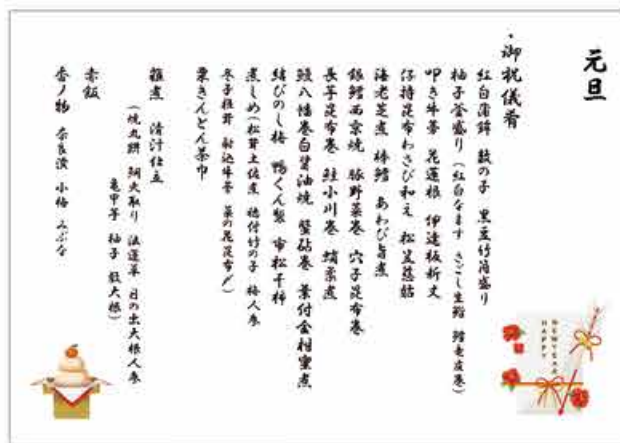 元旦
・御祝儀肴
紅白蒲鉾 数の子 黒豆竹筒盛り
柚子釜盛り(紅白なます きごし生鮨 鱈老皮巻)
叩き牛蒡 花蓮根 伊達板新丈
仔持昆布わさび和え 松笠慈姑
海老芝煮 棒鱈 あわび旨煮
銀鱈西京焼 豚野菜巻 穴子昆布巻
長芋昆布巻 鮭小川巻 蛸柔煮
鰻八幡巻白醤油焼 蟹砧巻 葉付金柑蜜煮
結びのし梅 鴨くん製 市松干柿
煮しめ(松茸土佐煮 穂付竹の子 梅人参
冬子椎茸 射込牛蒡 菜の花昆布〆)
栗きんとん茶巾
雑煮 清汁仕立
(焼丸餅 鯛火取り 法蓮草 日の出大根人参
亀甲芋 柚子 殿大根)
赤飯
香ノ物 奈良漬 小梅 みぶな
HAPPY
NEW YEAR